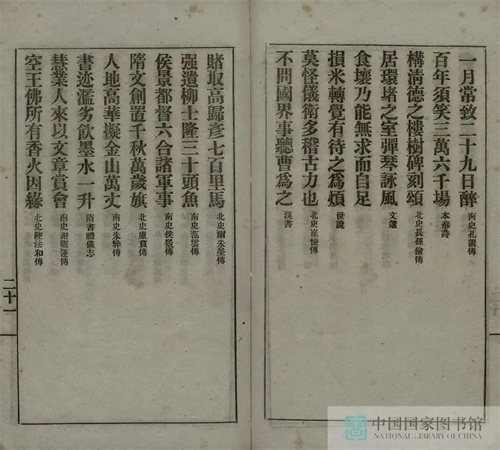 一月常致二十九日醉 南史孔覬傳
百年須笑三萬六千場 本蘇詩
構清德之樓樹碑刻頌 北史長孫儉傳
居環堵之室彈琴詠風 文選
食壤乃能無求而自足
損米轉覺有待之為煩 世說
莫怪儀衛多稽古力也 北史崔㥄傳
不問國界事聽曹為之 漢書
賭取高歸彥七百里馬 北史爾朱榮傳
强遺柳士隆三十頭魚 南史范雲傳
侯景都督六合諸軍事 南史侯景傳
隋文創置千秋萬歲旗 北史盧賁傳
人地高華擬金山萬丈 南史朱异傳
書迹濫劣飲墨水一升 隋書禮儀志
慧業人來以文章賞會 南史謝靈運傳
空王佛所有香火因緣 北史陸法和傳
二十一
中国国家图书馆
NATIONAL LIBRARY OF CHINA